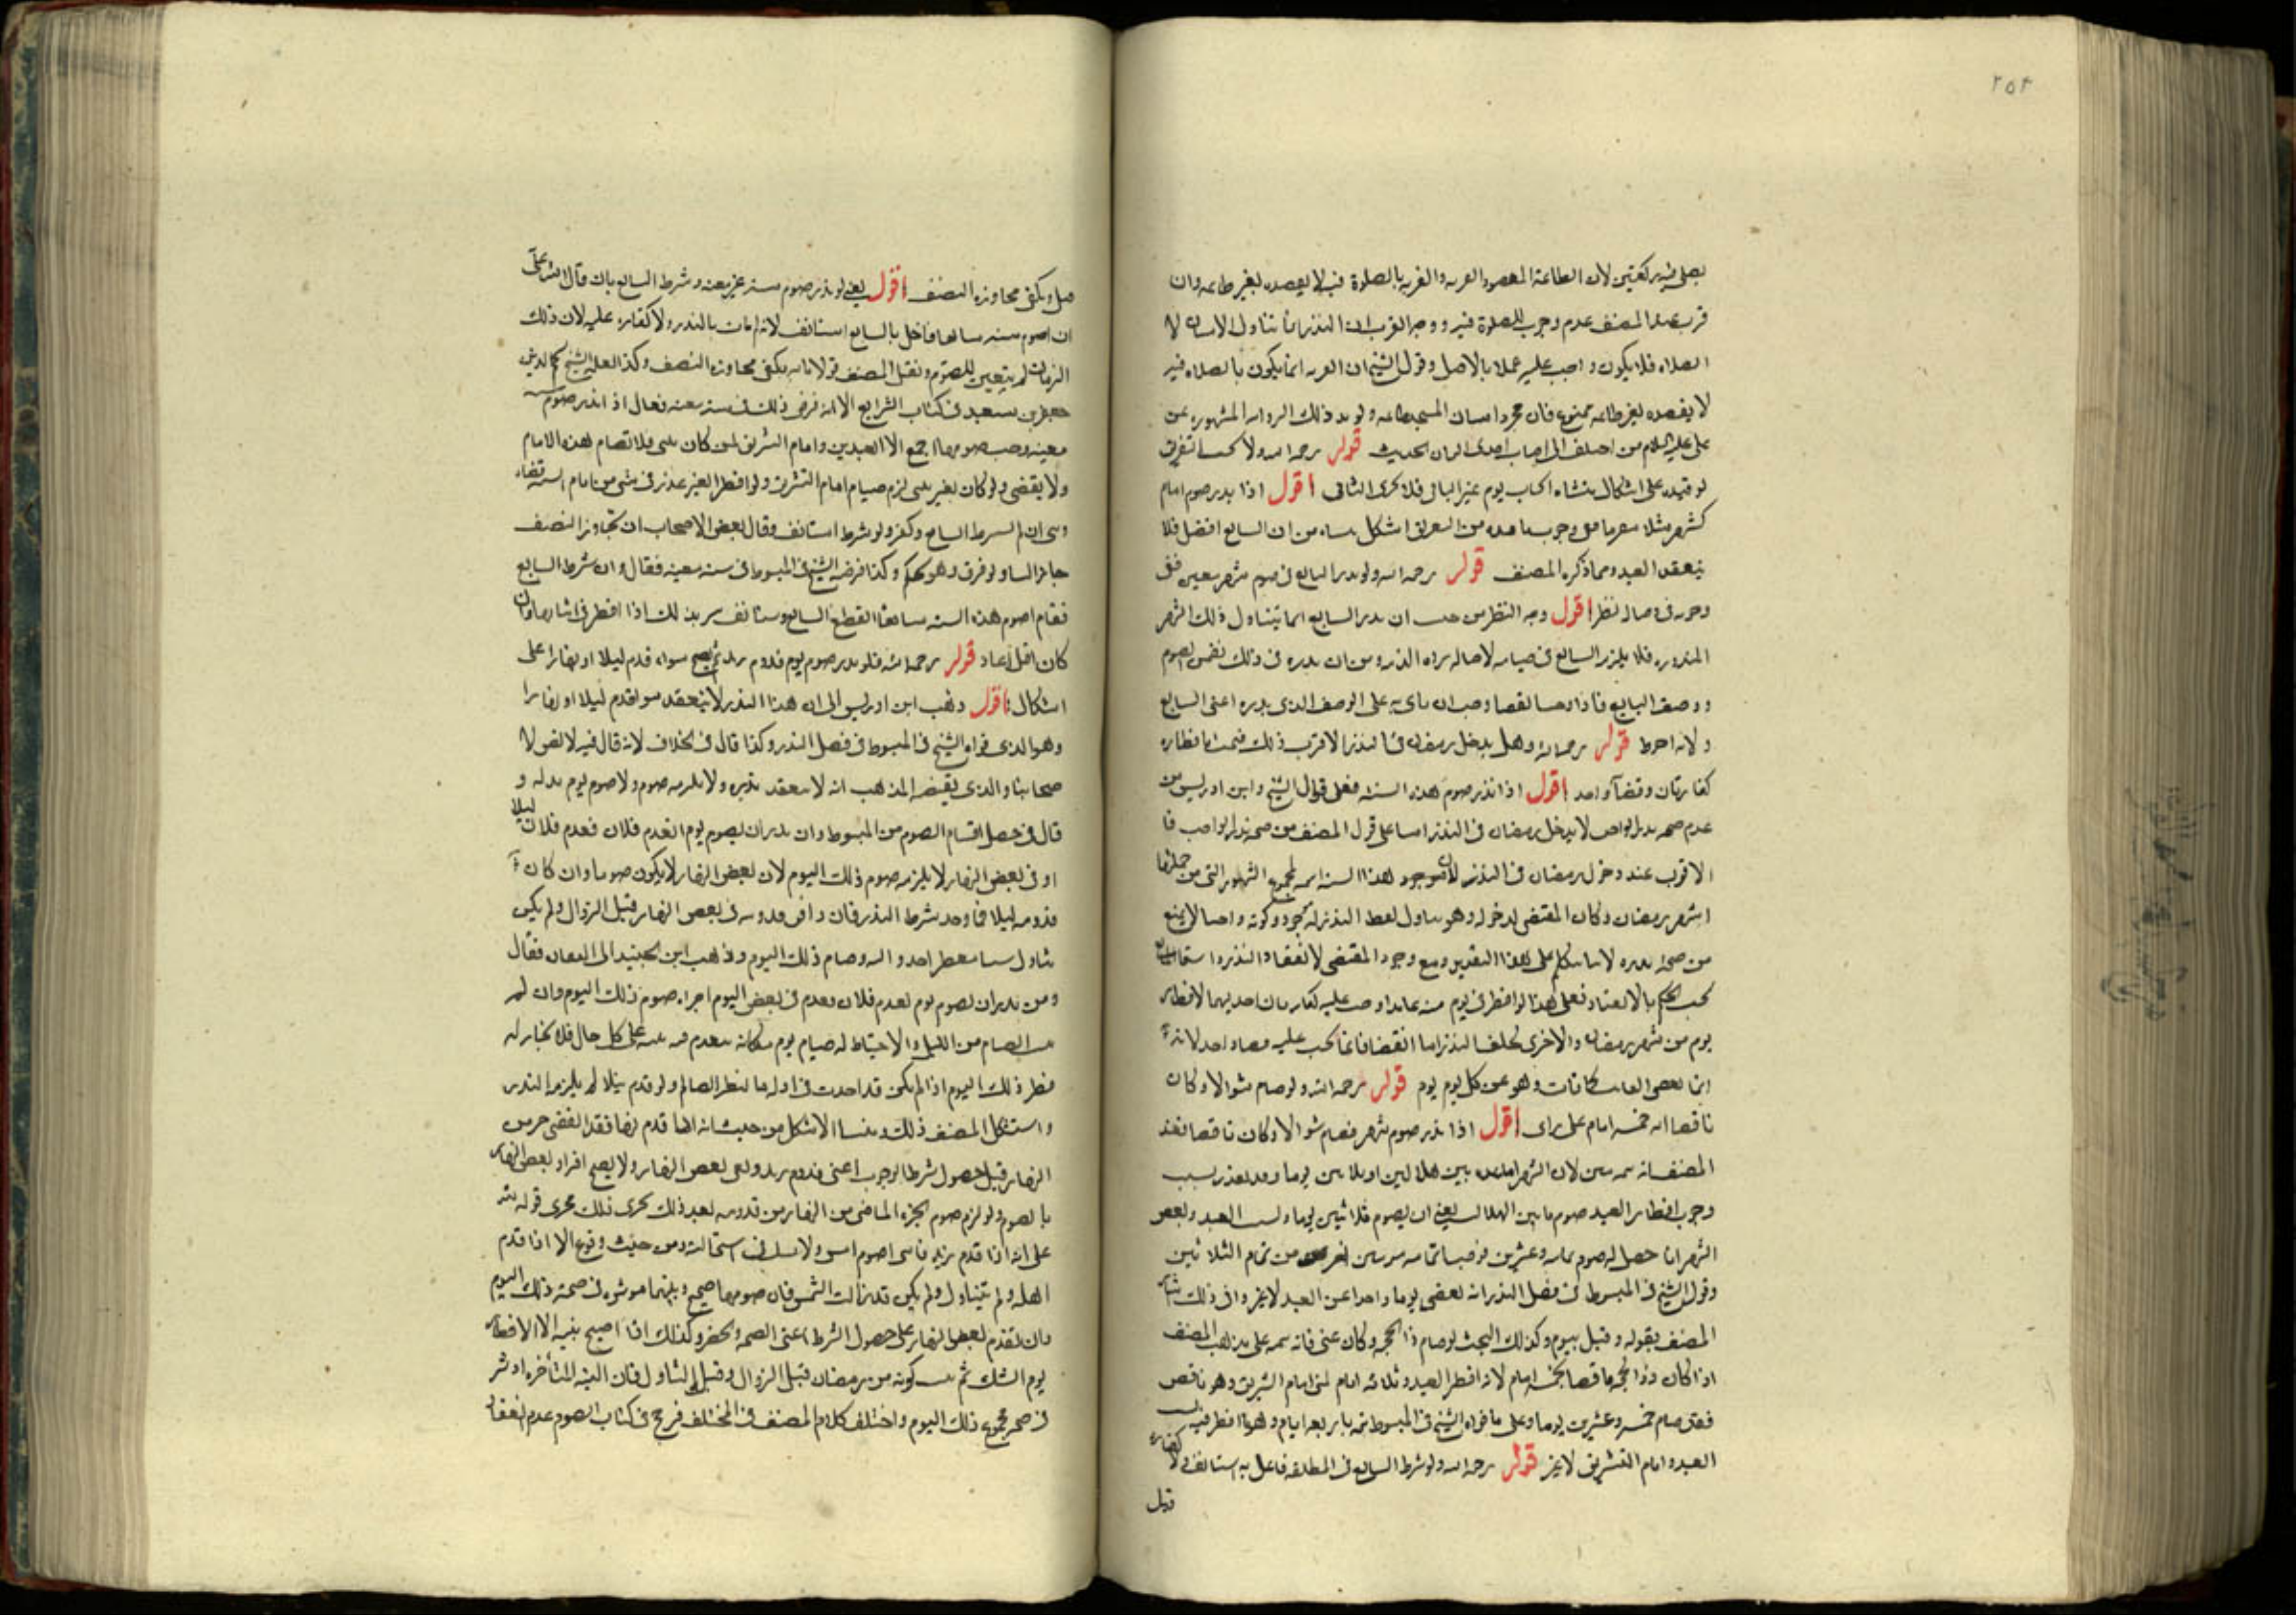 ٢٥٢
يصلي فيه ركعتين لان الطاعة المقصود القربه والقربه بالصلوة فيه لا بقصده بغير طاعه وان
المصنف عدم وجوب الصلوة فيه ووجه القرب ان النذر انما تناول الاتيان لا
الصلاه فلا يكون واجب عليه عملا بالاصل وقول الشيخ ان القربه انما يكون بالصلاه فيه
لا بقصده بغير طاعه ممنوع فان مجرد اتيان المسجد طاعه ويؤيد ذلك الروايه المشهوره عن
علي عليه السلام من اختلف الى اصاب احدى الثمان الحديث قوله رحمه الله ولا
لو قيده على اشكال ينشاء ايجاب يوم غير التالي فلا يجزي الثاني اقول اذا نذر صوم ايام
كشهر مثلا من ان التتابع افضل فلا
ينعقد القيد ومما ذكره المصنف قوله رحمه الله ولو نذر التتابع في صوم شهر معين ففي
وجوبه في قضائه نظر اقول وجه النظر من حيث ان نذر التتابع انما يتناول ذلك الشهر
المنذور فلا يلزم التتابع في قضائه لاصاله براءة الذمه ومن ان نذره في ذلك تضمن الصوم
ووصف التتابع فاذا وجب ان ياتي به على الوصف الذي نذره اعني التتابع
ولانه احوط قوله رحمه الله وهل يدخل رمضان في النذر الاقرب ذلك فيجب بافطاره
كفارتان وقضآء واحد اقول اذا نذر صوم هذه السنه فعلى قول الشيخ وابن ادريس من
عدم صحه نذر الواجب لا يدخل رمضان في النذر اما على قول المصنف من صحه نذر الواجب فا
الاقرب عنده دخول رمضان في النذر لان هذا السنه اسم لمجموع الشهور التي من جملتها
شهر رمضان وكان المقتضي لدخوله وهو تناول لفظ النذر له موجود وكونه واجبا لا يمنع
من صحه نذره لانا نتكلم على هذا التقدير ومع وجود المقتضي لانعقاد النذر وانتفاء المانع
يجب الحكم بالانعقاد فعلى هذا لو افطر في يوم منه عامدا وجب عليه كفارتان احديهما لافطار
يوم من شهر رمضان والاخرى لخلف النذر اما القضا فانما يجب عليه قضاء واحد لانه
انما يقضي الفايت كما فات وهو عن كل يوم يوم قوله رحمه الله ولو صام شوالا وكان
ناقصا اتمه خمسه ايام على راى اقول اذا نذر صوم شهر فصام شوالا وكان ناقصا فعند
المصنف انه يتمه بيومين لان الشهر اما عده بين هلالين او ثلاثين يوما وقد تعذر بسبب
وجوب افطار العيد صوم ما بين الهلالين يعني ان يصوم ثلاثين يوما وليس العيد وبعض
الشهر انما حصل له صوم ثمانيه وعشرين فوجب اتمامه بيومين من تمام الثلاثين
وقول الشيخ في المبسوط في فصل النذر انه يقضي يوما واحدا عن العيد لا غير والى ذلك اشار
المصنف بقوله وقيل بيوم وكذلك البحث لو صام ذا الحجه وكان بمنى فانه يتمه على مذهب المصنف
اذا كان ذو الحجه ناقصا بخمسه ايام لانه افطر العيد وثلاثه ايام لمنى ايام التشريق وهو ناقص
فقد صام خمسه وعشرين يوما وعلى ما قواه الشيخ في المبسوط يتمه باربعه ايام وهو ما افطر فيه
العيد وايام التشريق لا غير قوله رحمه الله ولو شرط التتابع في المطلقه فاخل به استانف ولا كفاره
قيل
قيل ويكفي مجاوزه النصف اقول يعني لو نذر صوم سنه غير معينه وشرط التتابع بان قال لله علي
ان اصوم سنه متتابعا فاخل بالتتابع استانف لانه لم يات بالنذر ولا كفاره عليه لان ذلك
الزمان لم يتعين للصوم ونقل المصنف قولا بانه يكفي مجاوزه النصف وكذا نقله الشيخ نجم الدين
جعفر بن سعيد في كتاب الشرايع الا انه فرض ذلك في سنه معينه فقال اذا نذر صوم سنه
معينه وجب صومها اجمع الا العيدين وايام التشريق لمن كان بمنى فلا تصام هذه الايام
ولا يقضى ولو كان بغير منى لزم صيام ايام التشريق ولو افطر لغير عذر في شئ من ايام السنه قضاه
وبنى ان لم يشترط التتابع وكفر ولو شرط استانف وقال بعض الاصحاب ان تجاوز النصف
جاز البنا ولو فرق وهو تحكم وكذا فرضه الشيخ في المبسوط في سنه معينه فقال وان شرط التتابع
فقام اصوم هذه السنه متتابعا انقطع التتابع ويستانف يريد بذلك اذا افطر في اثنائها وان
كان اقل اعاد قوله رحمه الله فلو نذر صوم يوم قدوم زيد لم يصح سواء قدم ليلا او نهارا على
اشكال اقول ذهب ابن ادريس الى ان هذا النذر لا ينعقد سوا قدم ليلا او نهارا
وهو الذي قواه الشيخ في المبسوط في فصل النذر وكذا قال في الخلاف لانه قال فيه لا نص لا
صحابنا والذي يقتضيه المذهب انه لا ينعقد نذره ولا يلزمه صوم ولا صوم يوم بدله و
قال في فصل اقسام الصوم من المبسوط وان نذر ان يصوم يوم القدم فلان فقدم فلان ليلا
او في بعض النهار لا يلزمه صوم ذلك اليوم لان بعض النهار لا يكون صوما وان كان
قدومه ليلا فما وجد شرط النذر فان وافق قدومه في بعض النهار قبل الزوال ولم يكن
تناول شيئا مفطرا جدد النيه وصام ذلك اليوم وذهب ابن الجنيد الى فقال
ومن نذر ان يصوم يوم يقدم فلان فقدم في بعض اليوم اجزاه صوم ذلك اليوم وان لم
يبيت الصيام من الليل والاحتياط له صيام يوم مكانه على كل حال فلا يختار له
فطر ذلك اليوم اذا لم يكن قد احدث في اوله ما يفطر الصائم ولو قدم ليلا لم يلزمه النذر
واستشكل المصنف ذلك ومنشا الاشكال من حيث انه اذا قدم نهارا فقد انقضى جزء من
النهار قبل حصول شرط الوجوب اعني قدوم زيد وبقي بعض النهار ولا يصح افراد بعض النهار
بالصوم ولو لزم صوم الجزء الماضي من النهار من قدومه بعد ذلك يجري ذلك مجرى قوله لله
علي انه اذا قدم زيد فانني اصوم امس ولا شك في استحالته ومن حيث وقوع الا اذا قدم
اهله ولم يتناول ولم يكن قد زالت الشمس فان صومهما صحيح ونيتهما موثره في صحه ذلك اليوم
وان تقدم بعض النهار على حصول الشرط اعني الصحه والحضر وكذلك اذا اصبح بنيه الافطار
يوم الشك ثم كونه من رمضان قبل الزوال وقبل التناول فان النيه المتأخره اوثر
في صحه مجموع ذلك اليوم واختلف كلام المصنف في المختلف فرجح في كتاب الصوم عدم انعقاد